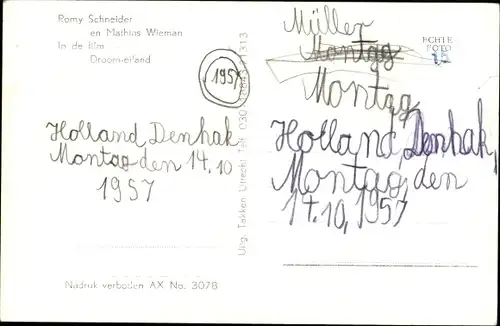 Romy Schneider
en Mathias Wieman
In de film
Droom-eiland
1957
Holland Denhak
Montag den 14.10
1957
Nadruk verboden AX No. 3078
Uitg. Takken Utrecht Tel. 030
11313
Müller
Montag
ECHTE
FOTO
Montag
Holland, Denhak,
Montag, den
14.10, 1957